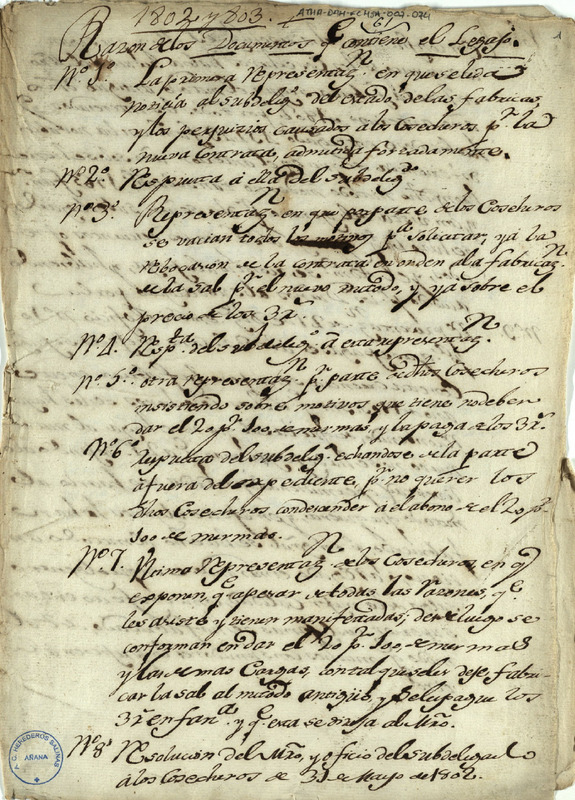 1802 y 803.
ATHA-DAH-FCHSA-007.074
(6)
1
Razon de los Documentos q.e contiene el Legajo.
N.o 1.o La primera representaz.n en que se le da
noticia al subdeleg.o del estado de las fabricas,
y los perjuicios causados a los Cosecheros p.r la
nueva Contrata, admitida forzadamente.
N.o 2.o Respuesta á ella del subdeleg.o
N.o 3.o Representaz.n en que por parte de los Cosecheros
se vacian todos los p.a solicitar, ya la
rebocazion de la contrata en orden a la fabricaz.n
de la sal p.r el nuevo metodo, y ya sobre el
precio de los 3 r.s
N.o 4. Resp.ta del subdeleg.o á esta representaz.n
N.o 5.o otra representaz.n p.r parte de dhos Cosecheros
insistiendo sobre motivos que tiene no deber
dar el 20 p.r 100 de mermas, y la paga de los 3 r.s
N.o 6.o respuesta del subdeleg.o echandose de la parte
á fuera del expediente, p.r no querer los
dhos Cosecheros condescender á el abono de el 20 p.r
100 de mermas.
N.o 7. Representaz.n de los Cosecheros, en q.e
exponen, q.e apesar de todas las razones, q.e
les asiste y tienen manifestadas, desde luego se
conforman en dar el 20 p.r 100 de mermas
y las demas Cargas, con tal que se les deje fabri-
car la sal al metodo antiguo, y se les pague los
3 r.s en fan.a y q.e esta se dirija al Mro.
N.o 8.o Resolucion del Mro, y oficio del subdelegado
á los Cosecheros de 31 de Mayo de 1802.
A.C. HEREDEROS SALINAS
AÑANA